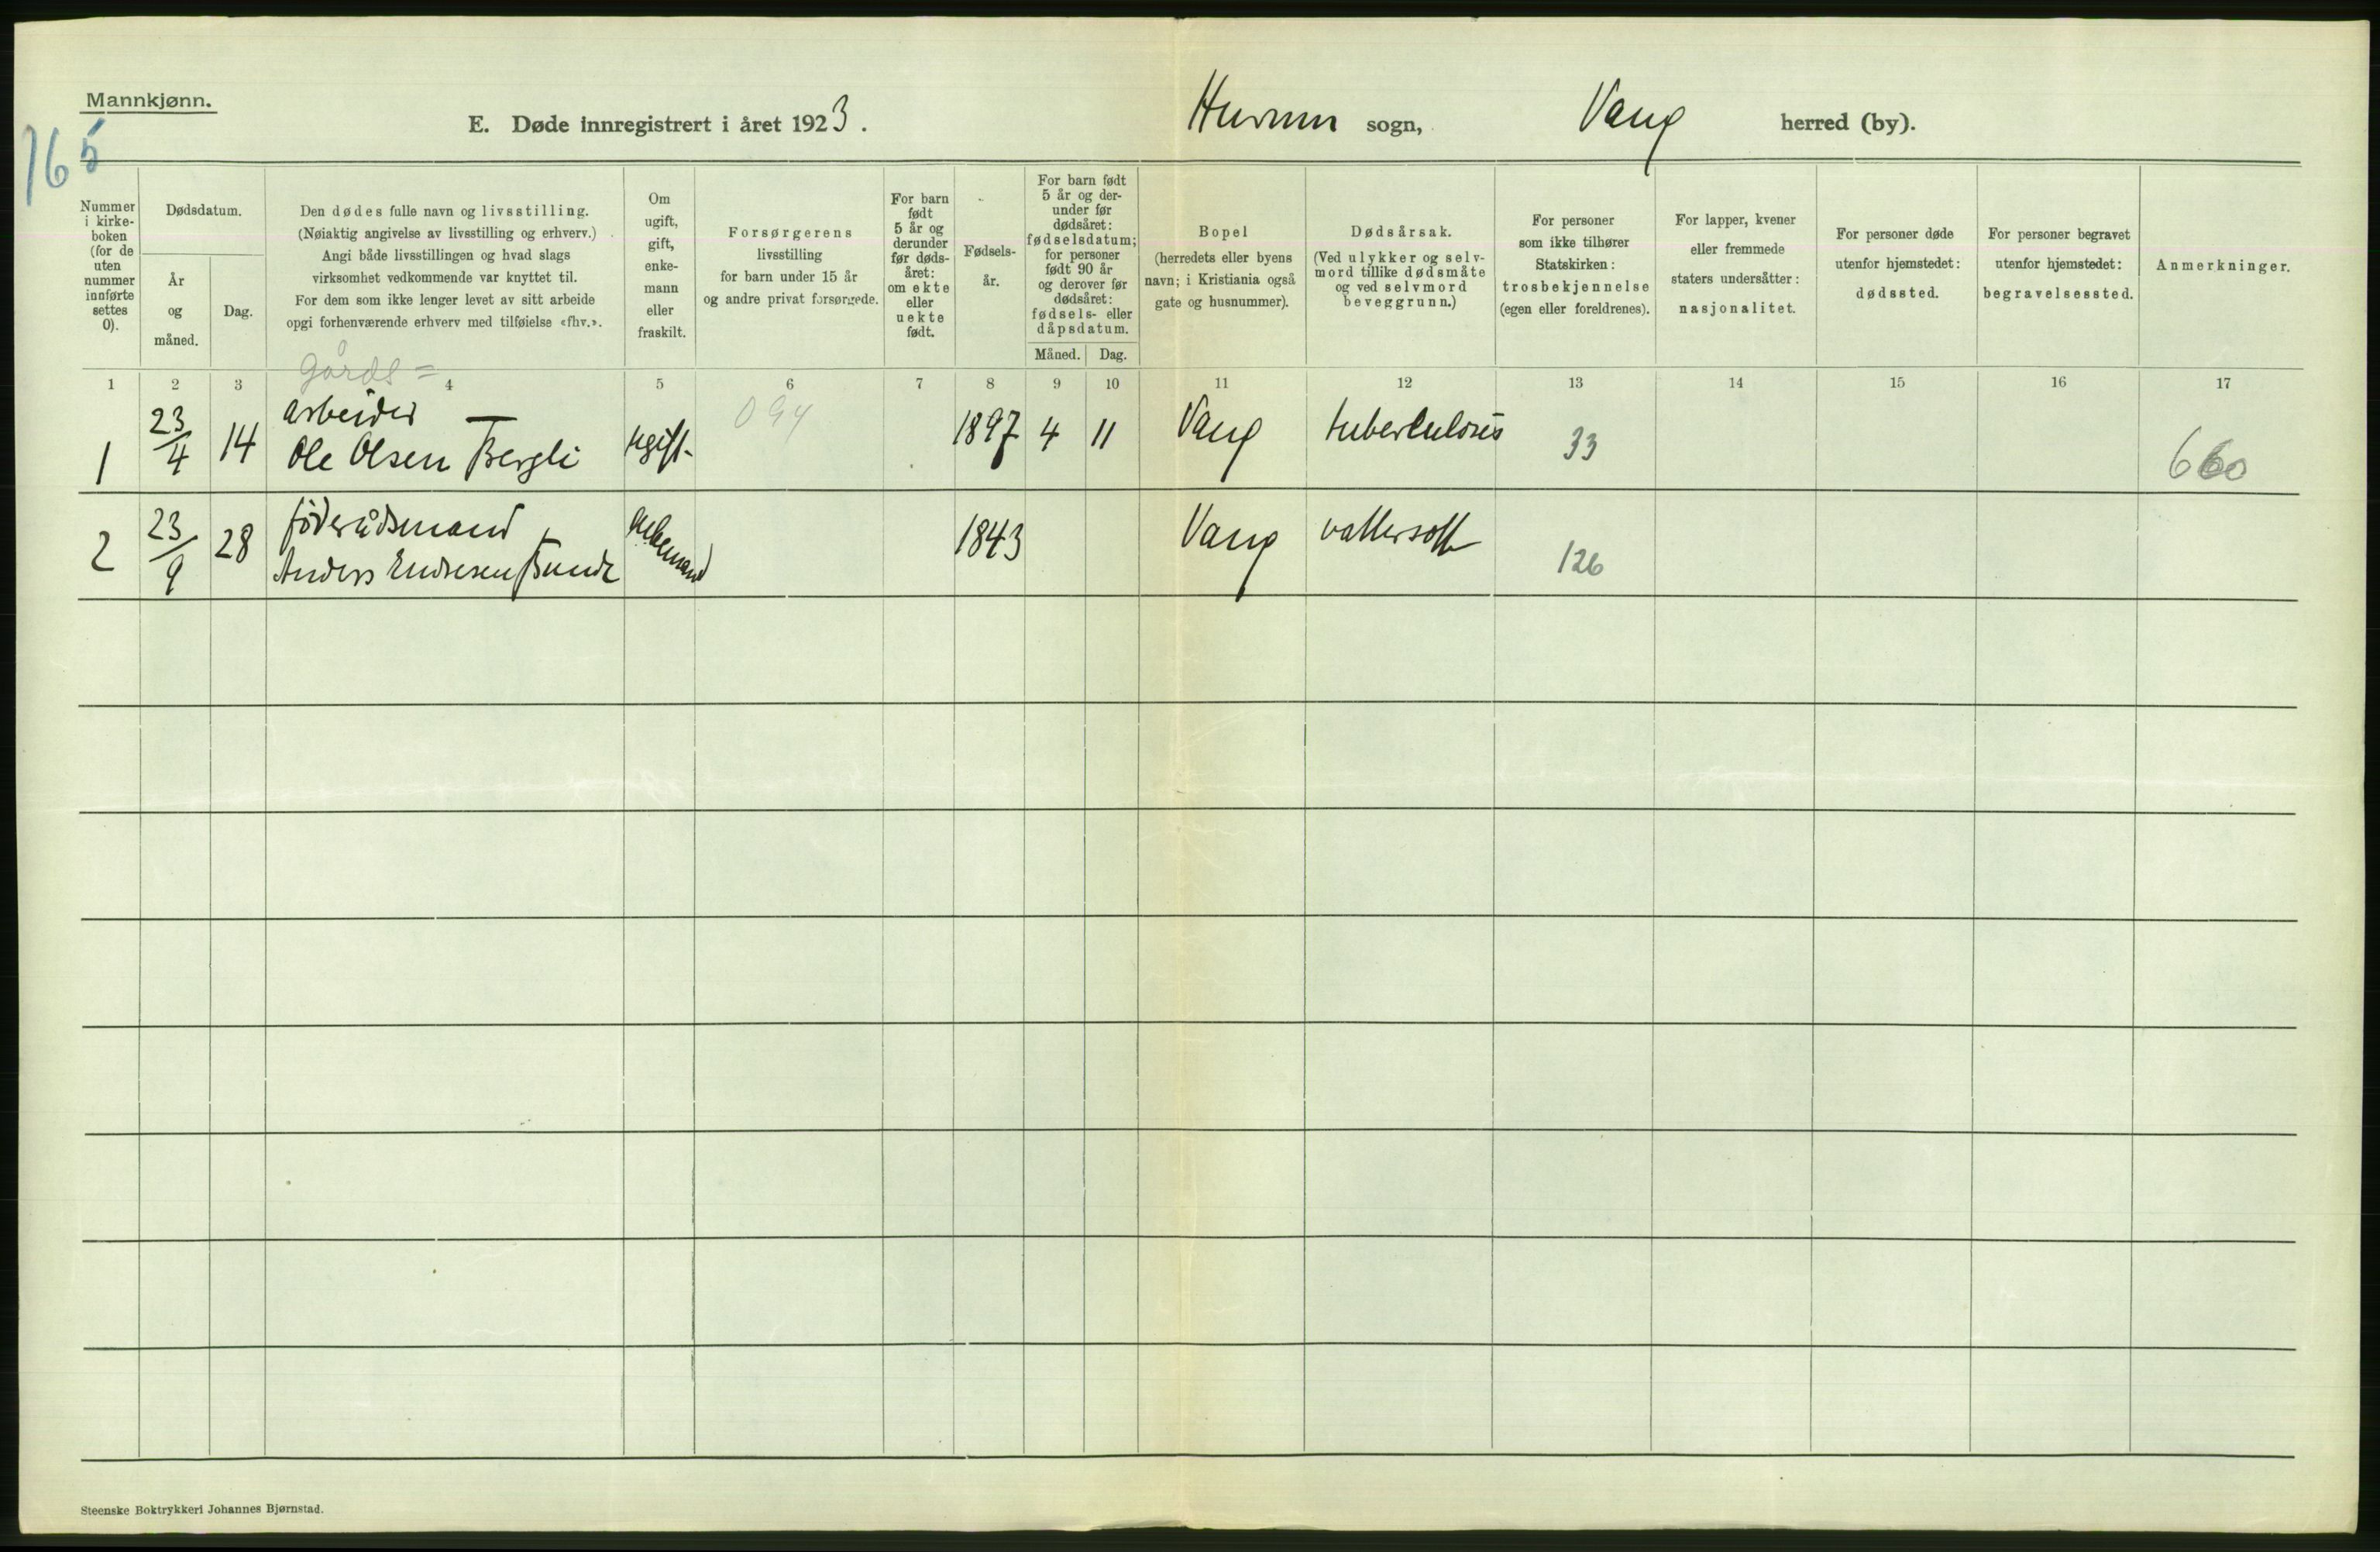 Mannkjønn.
165
E. Døde innregistrert i året 1923. Hurum sogn, Vang herred (by).
Nummer i kirke-boken (for de uten nummer innførte settes 0).
Dødsdatum.
År og måned.
Dag.
Den dødes fulle navn og livsstilling.
(Nøiaktig angivelse av livsstilling og erhverv.)
Angi både livsstillingen og hvad slags
virksomhet vedkommende var knyttet til.
For dem som ikke lenger levet av sitt arbeide
opgi forhenværende erhverv med tilføielse «fhv.».
Om
ugift,
gift,
enke-
mann
eller
fraskilt.
Forsørgerens
livsstilling
for barn under 15 år
og andre privat forsørgede.
For barn
født
5 år og
derunder
før døds-
året:
om ekte
eller
uekte
født.
Fødsels-
år.
For barn født
5 år og der-
under før
dødsåret:
fødselsdatum;
for personer
født 90 år
og derover før
dødsåret:
fødsels- eller
dåpsdatum.
Måned. Dag.
Bopel
(herredets eller byens
navn; i Kristiania også
gate og husnummer).
Dødsårsak.
(Ved ulykker og selv-
mord tillike dødsmåte
og ved selvmord
beveggrunn.)
For personer
som ikke tilhører
Statskirken:
trosbekjennelse
(egen eller foreldrenes).
For lapper, kvener
eller fremmede
staters undersåtter:
nasjonalitet.
For personer døde
utenfor hjemstedet:
dødssted.
For personer begravet
utenfor hjemstedet:
begravelsessted.
Anmerkninger.
1 2 3 4 5 6 7 8 9 10 11 12 13 14 15 16 17
Gårds=
arbeider
1 23/4 14 Ole Olsen Bergli ugift 094 1897 4 11 Vang tuberkulose 33 660
føderådsmand
2 23/9 28 Anders Endresen Bunde enkemand 1843 Vang vattersott 126
Steenske Boktrykkeri Johannes Bjørnstad.